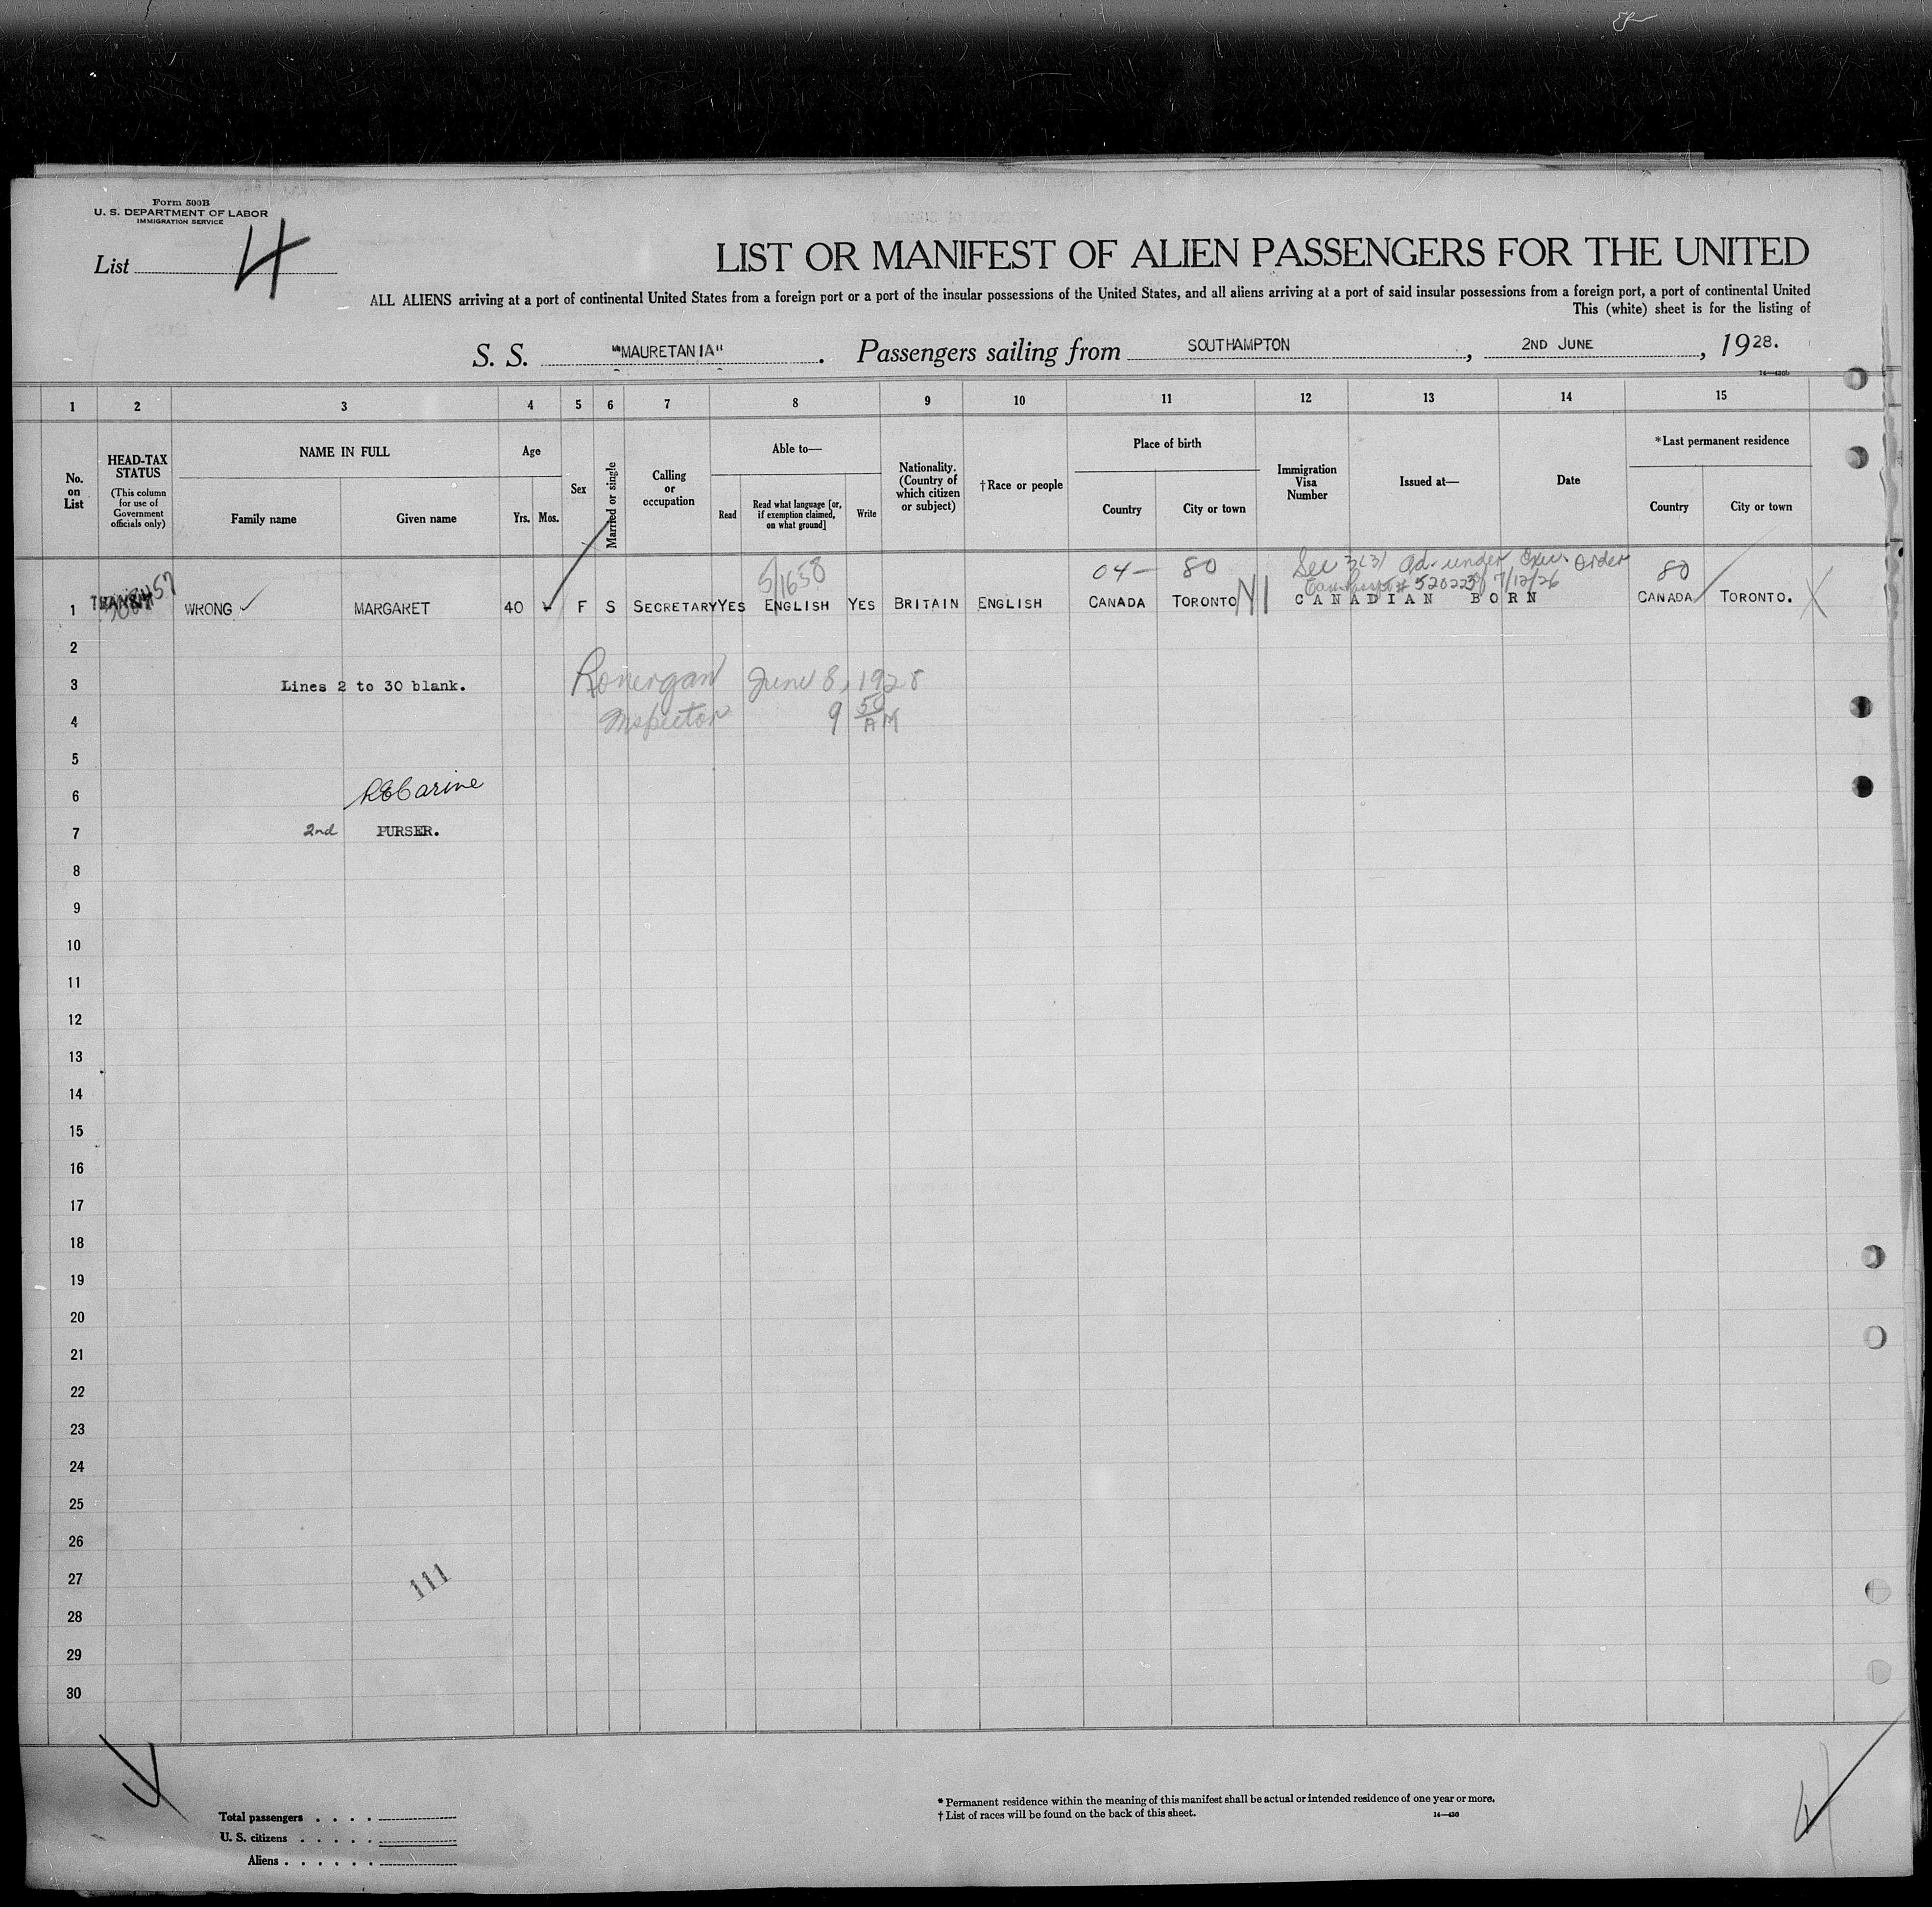 Form 500B
U. S. DEPARTMENT OF LABOR
IMMIGRATION SERVICE
List 4
LIST OR MANIFEST OF ALIEN PASSENGERS FOR THE UNITED
ALL ALIENS arriving at a port of continental United States from a foreign port or a port of the insular possessions of the United States, and all aliens arriving at a port of said insular possessions from a foreign port, a port of continental United
This (white) sheet is for the listing of
S. S. "MAURETANIA". Passengers sailing from SOUTHAMPTON, 2ND JUNE, 1928.
1 2 3 4 5 6 7 8 9 10 11 12 13 14 15
No. on List
HEAD-TAX STATUS
(This column for use of Government officials only)
NAME IN FULL
Family name Given name
Age
Yrs. Mos.
Sex
Married or single
Calling or occupation
Able to—
Read
Read what language [or, if exemption claimed, on what ground]
Write
Nationality. (Country of which citizen or subject)
†Race or people
Place of birth
Country City or town
Immigration Visa Number
Issued at—
Date
*Last permanent residence
Country City or town
5/1658 04- 80 Sec 3(3) ad. under Exec. Order 80
520225 7/12/26
1 TRANSIT WRONG MARGARET 40 F S SECRETARY YES ENGLISH YES BRITAIN ENGLISH CANADA TORONTO CANADIAN BORN CANADA TORONTO.
2
3 Lines 2 to 30 blank. June 8, 1928
4 Inspector 9 50 AM
5
6
7 2nd PURSER.
8
9
10
11
12
13
14
15
16
17
18
19
20
21
22
23
24
25
26
27 111
28
29
30
Total passengers . . . .
U. S. citizens . . . . .
Aliens . . . . . .
* Permanent residence within the meaning of this manifest shall be actual or intended residence of one year or more.
† List of races will be found on the back of this sheet. 14—430